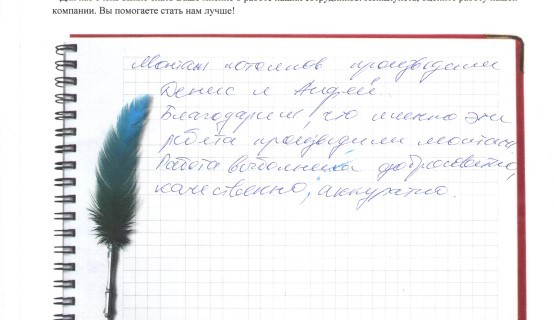 компании. Вы помогаете стать нам лучше!
Монтаж потолков производили
Денис и Андрей.
Благодарим, что именно эти
ребята производили монтаж
Работа выполнена добросовестно,
качественно, аккуратно.